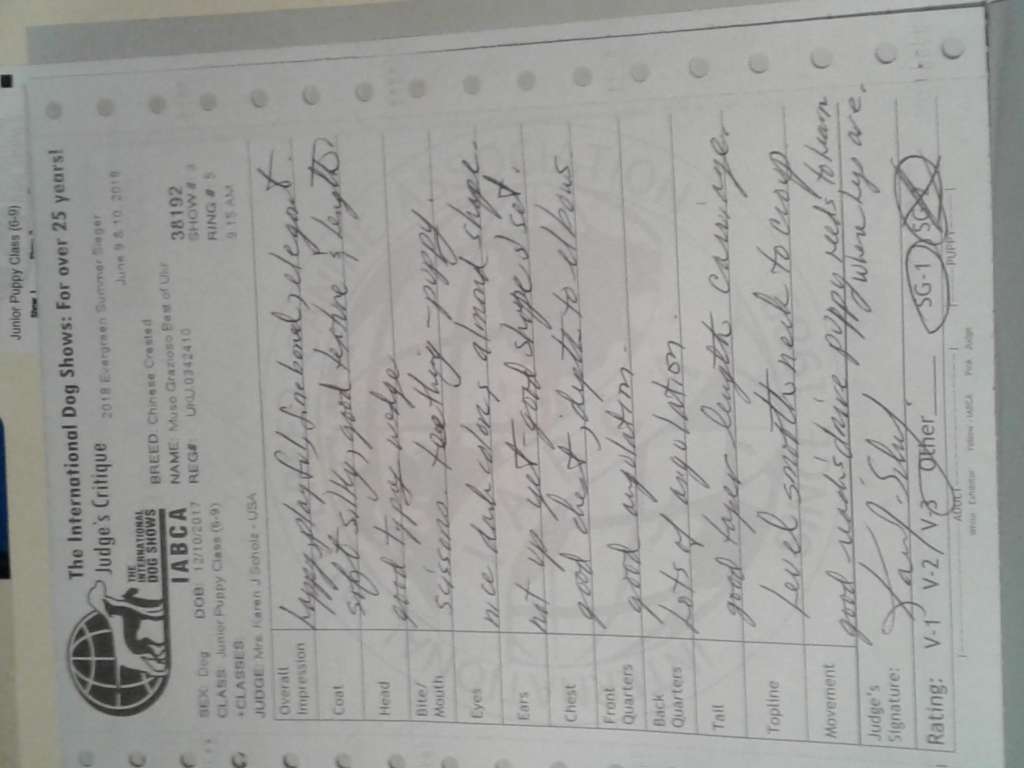 Junior Puppy Class (6-9)
The International Dog Shows: For over 25 years!
Judge's Critique 2018 Evergreen Summer Sieger
June 9 & 10, 2018
THE INTERNATIONAL DOG SHOWS
IABCA
BREED: Chinese Crested 38192
NAME: Muso Grazioso Best of Uki SHOW #
REG#: UKU0342410 RING # 5
9:15 AM
SEX: Dog DOB: 12/10/2017
CLASS: Junior Puppy Class (6-9)
+CLASSES
JUDGE: Mrs. Karen J Scholz - USA
Overall Impression happy, playful, fine boned, elegant.
Coat soft & silky, good texture & length.
Head good type wedge
Bite/ Mouth scissors teething - puppy.
Eyes nice dark colors almond shape.
Ears not up yet - good shape & set.
Chest good chest, depth to elbows
Front Quarters good angulation.
Back Quarters Lots of angulation.
Tail good taper length carriage.
Topline level smooth neck to croup
Movement good reach & drive puppy needs to learn
where legs are.
Judge's Signature:
Rating: V-1 V-2 / V-3 Other ____ SG-1
ADULT PUPPY
White - Exhibitor Yellow - IABCA Pink - Judge